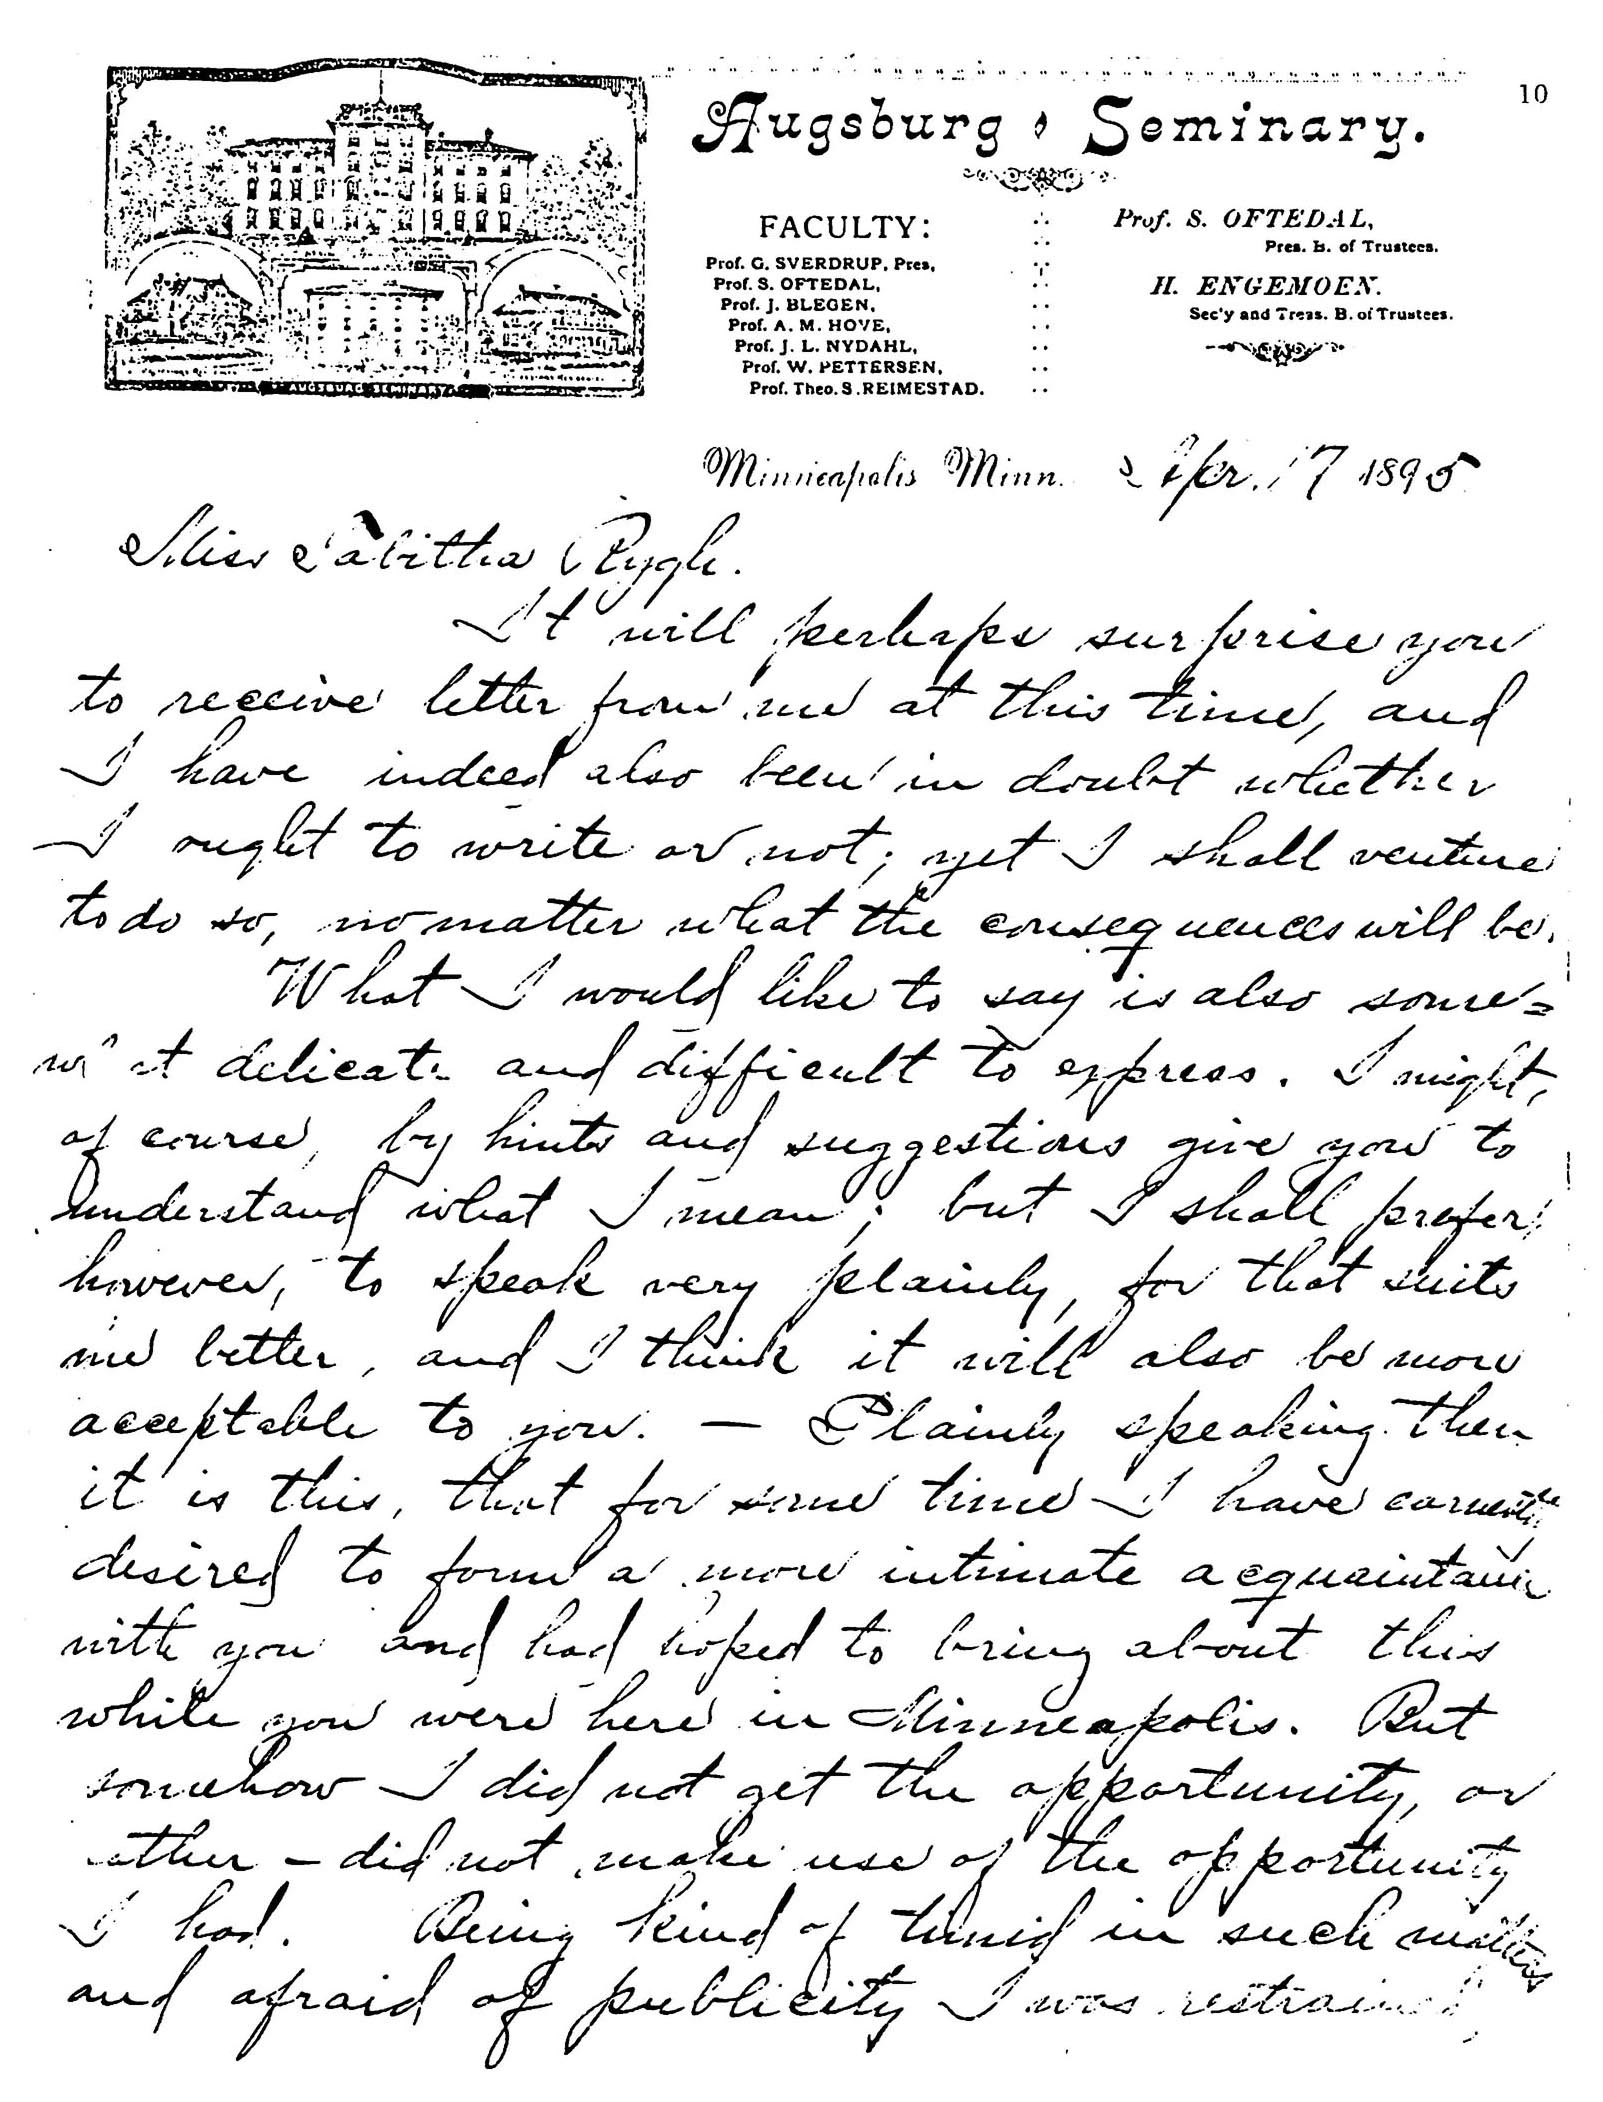 10
Augsburg Seminary.
FACULTY:
Prof. G. SVERDRUP, Pres,
Prof. S. OFTEDAL,
Prof. J. BLEGEN,
Prof. A. M. HOVE,
Prof. J. L. NYDAHL,
Prof. W. PETTERSEN,
Prof. Theo. S. REIMESTAD.
Prof. S. OFTEDAL,
Pres. B. of Trustees.
H. ENGEMOEN.
Sec'y and Treas. B. of Trustees.
AUGSBURG SEMINARY
Minneapolis Minn. Apr. 17 1895
Miss Tabitha Rygh.
It will perhaps surprise you
to receive letter from me at this time, and
I have indeed also been in doubt whether
I ought to write or not; yet I shall venture
to do so, no matter what the consequences will be.
What I would like to say is also some=
what delicate and difficult to express. I might,
of course, by hints and suggestions give you to
understand what I mean; but I shall prefer,
however, to speak very plainly, for that suits
me better, and I think it will also be more
acceptable to you. — Plainly speaking then
it is this, that for some time I have earnestly
desired to form a more intimate acquaintance
with you and had hoped to bring about this
while you were here in Minneapolis. But
somehow I did not get the opportunity, or
rather – did not make use of the opportunity
I had. Being kind of timid in such matters
and afraid of publicity I was restrained